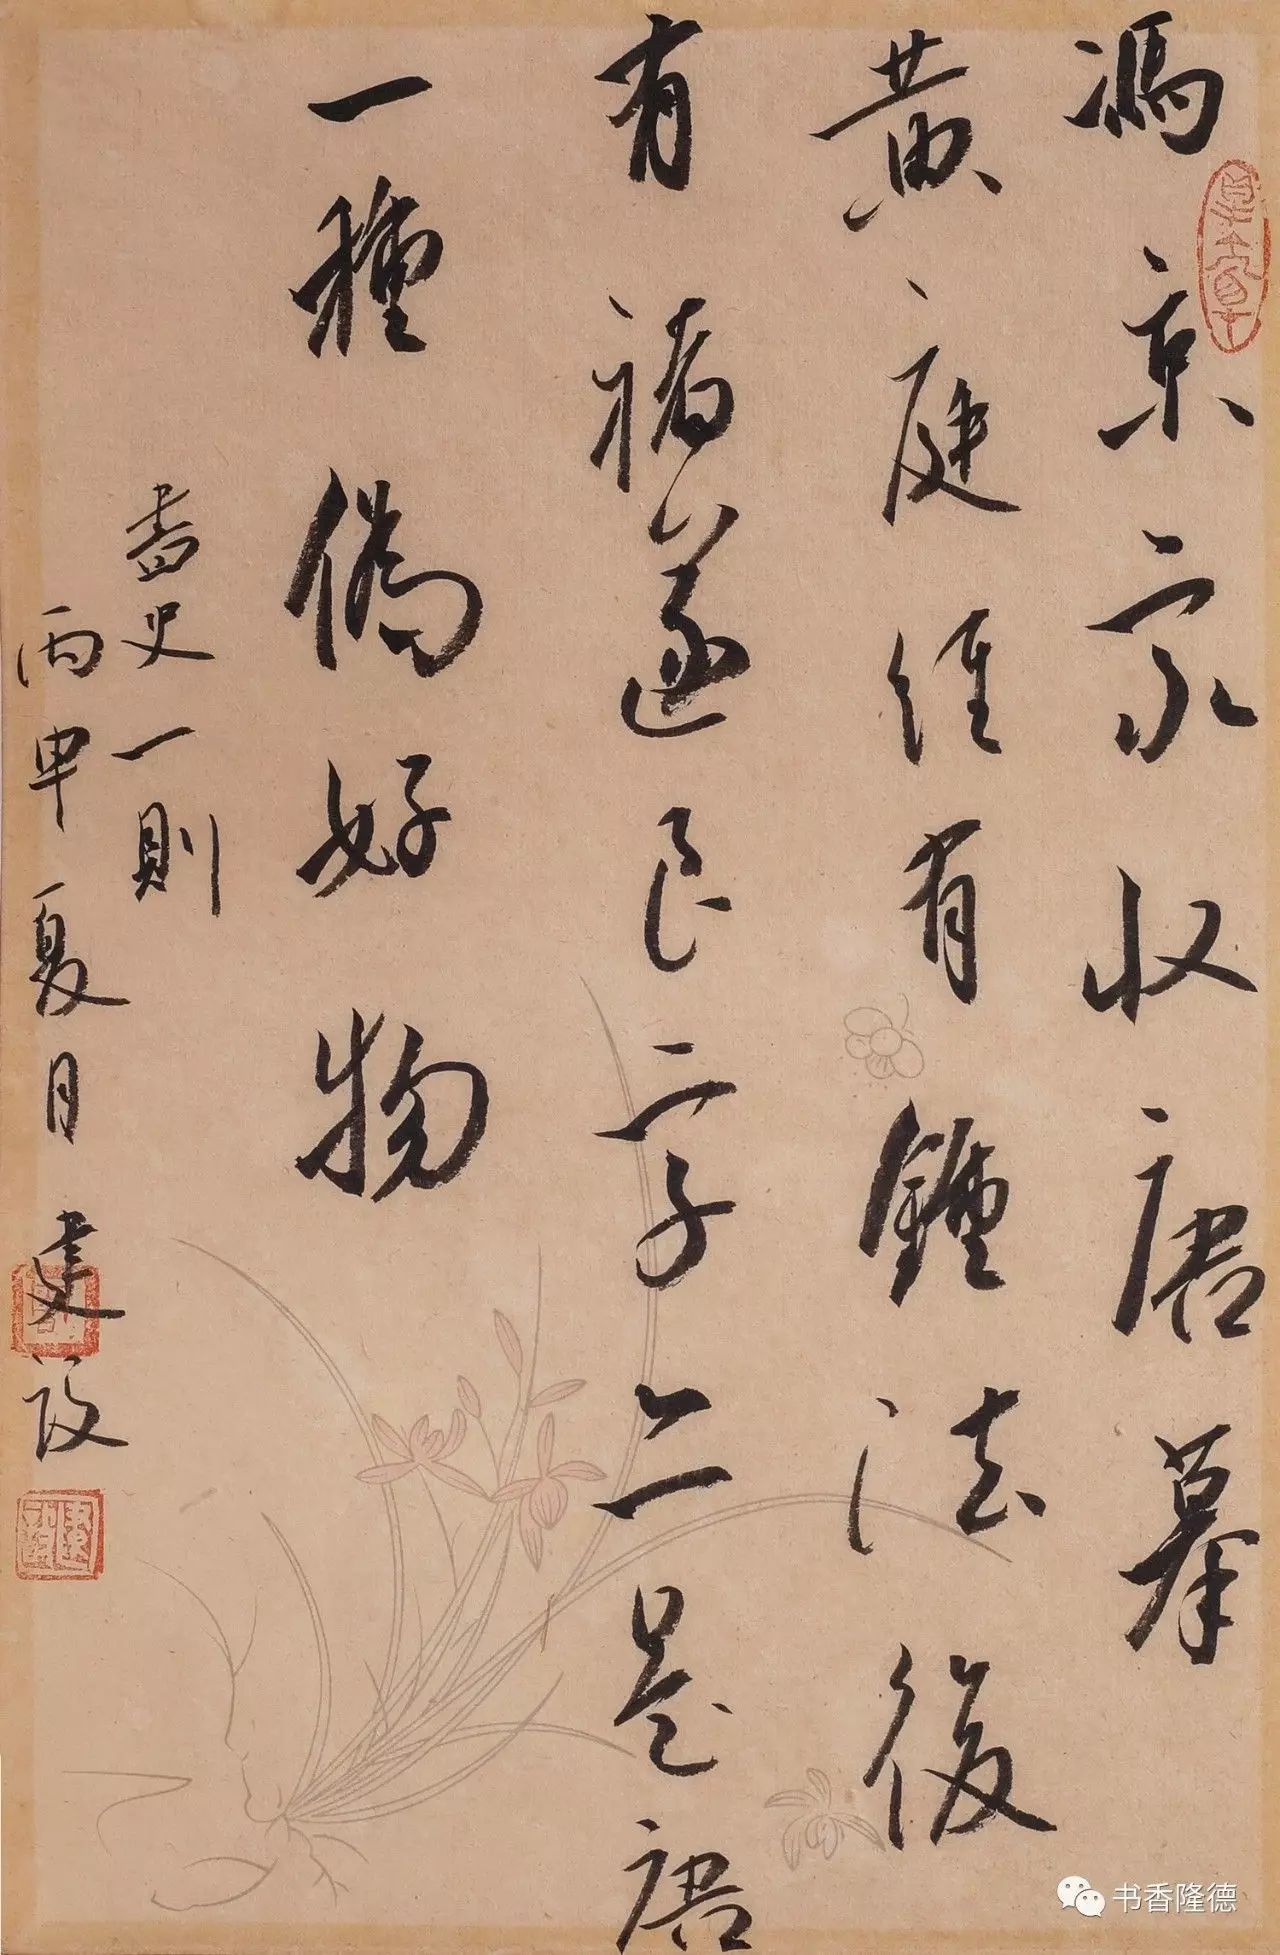 馮京家收唐摹
黄庭經有鍾法後
有褚遂良字亦是唐
一種偽好物
書史一則
丙申夏月建設
书香隆德